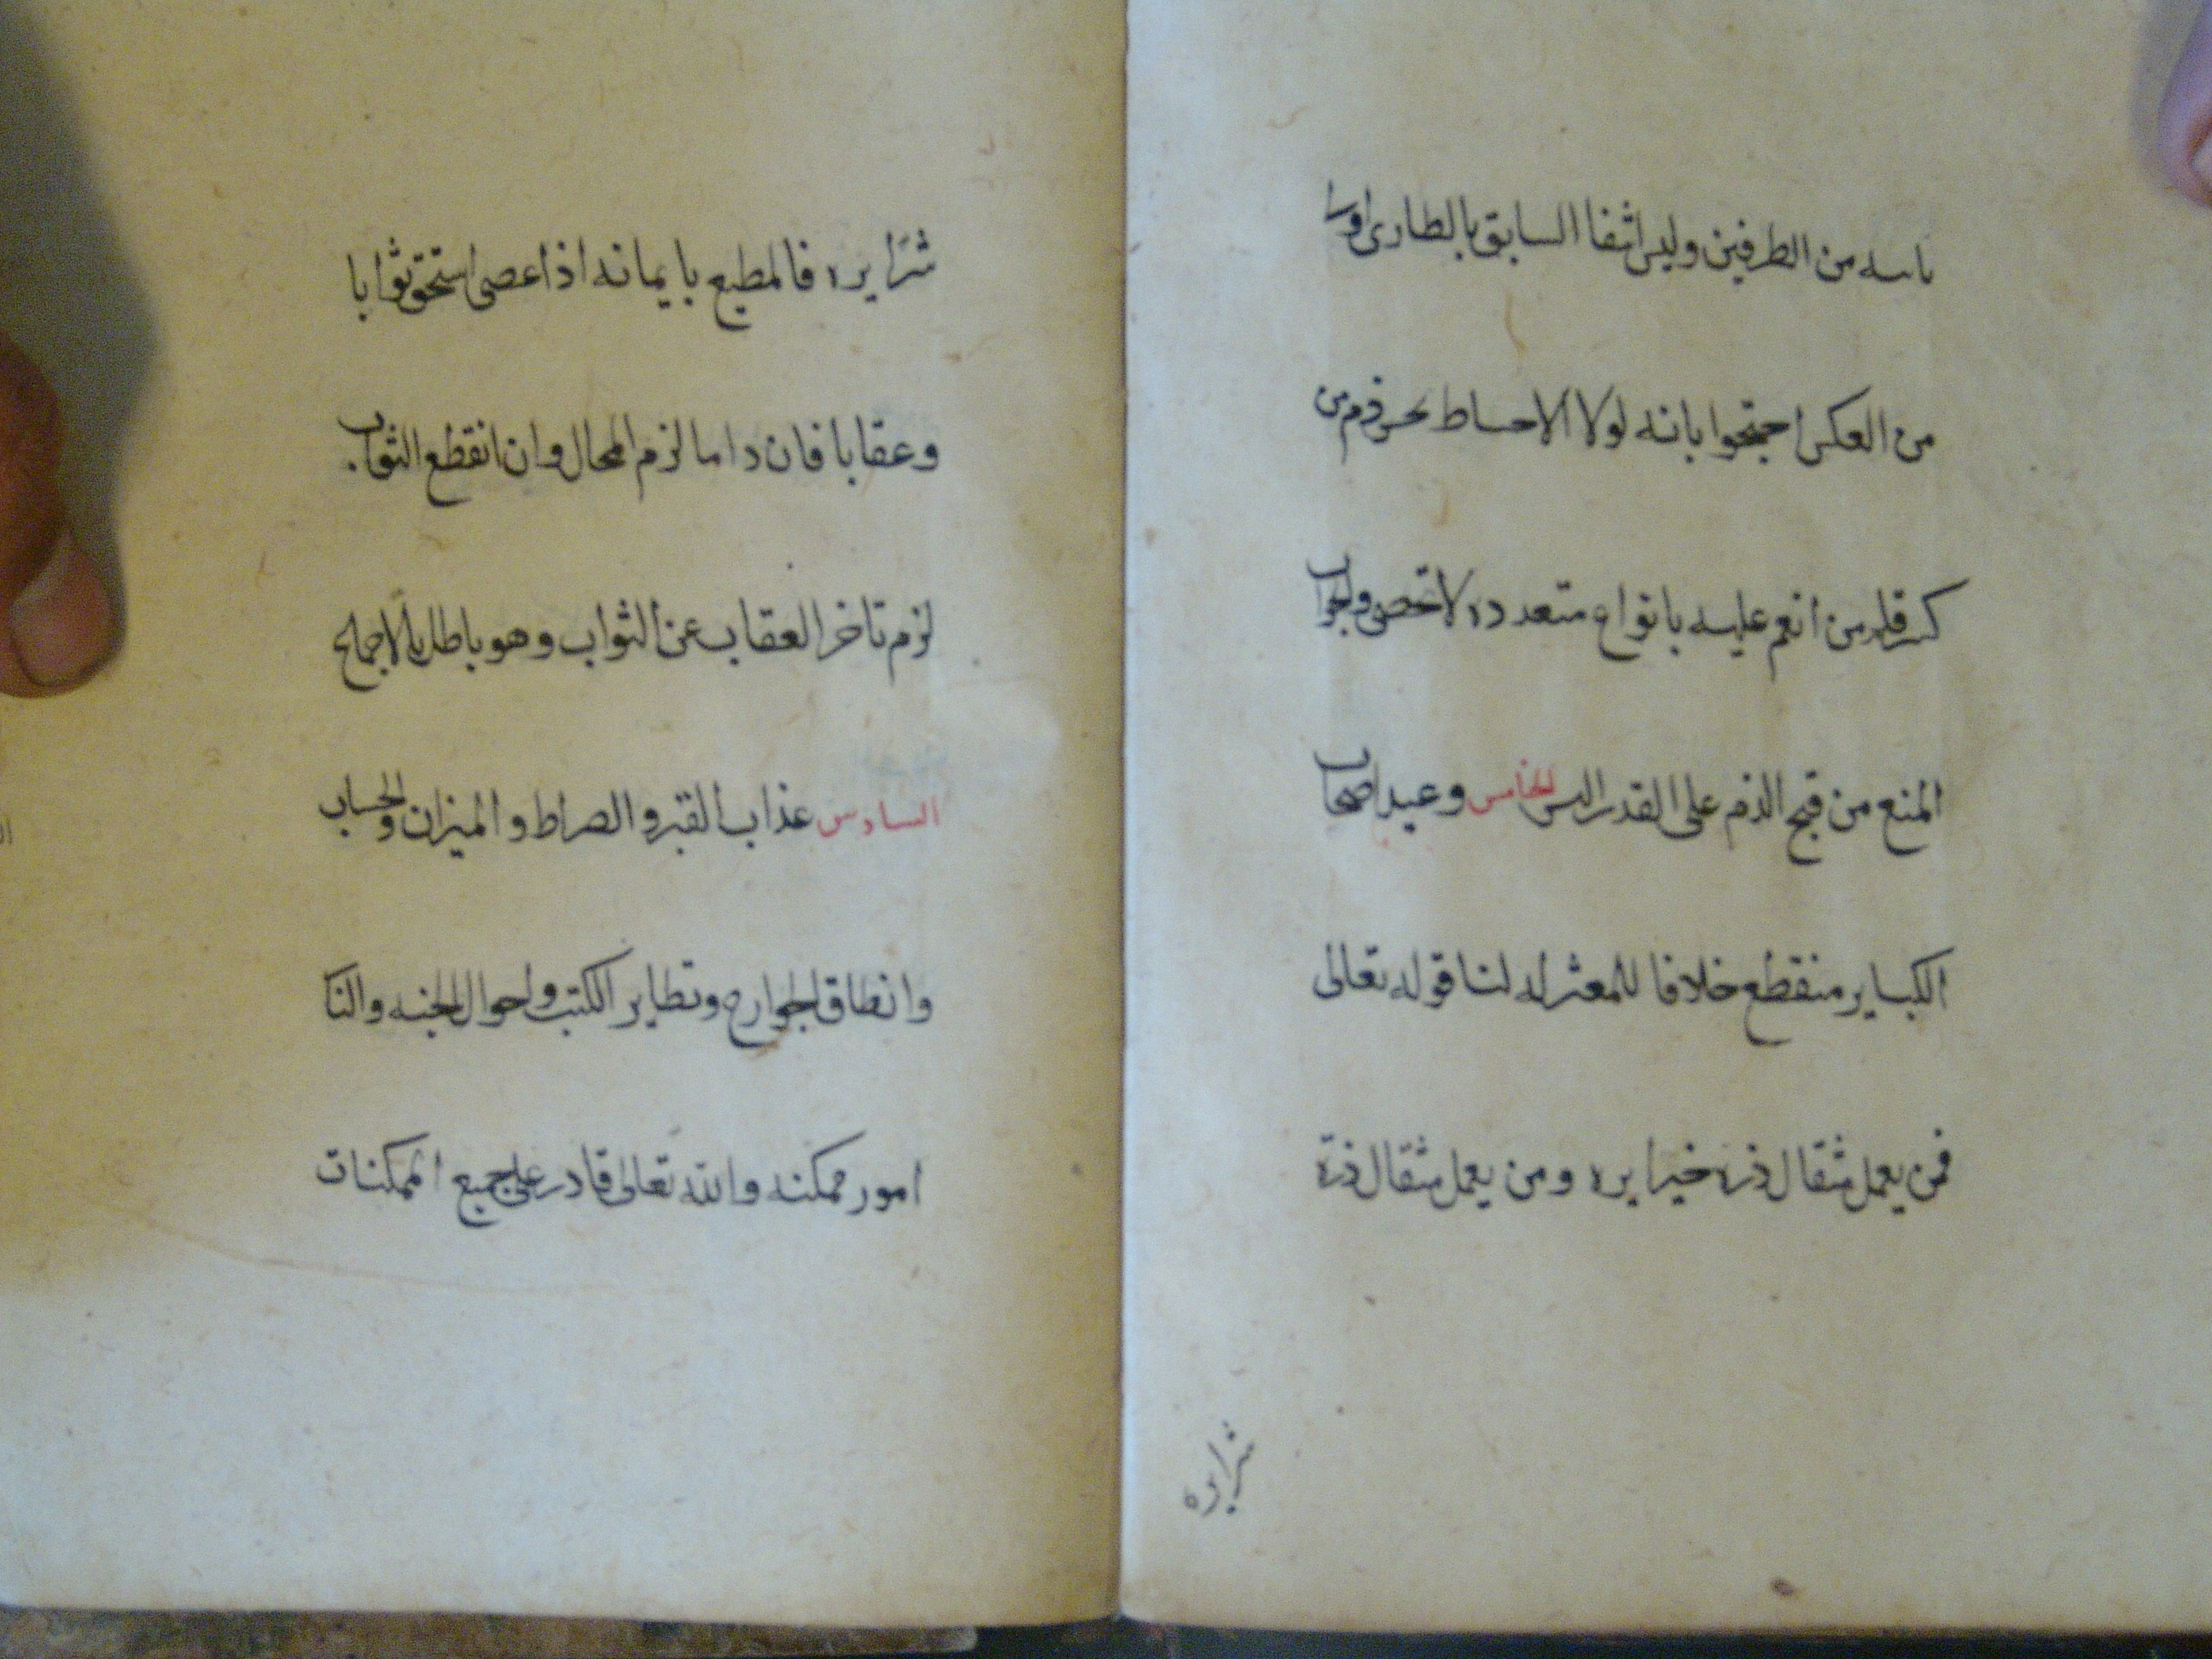 من الطرفين وليس انتفا السابق بالطارى اولى
من العكس احتجوا بانه لولا الاحباط لحسن ذم من
كسر قلم من انعم عليه بانواع متعدده لا تحصى والجواب
المنع من قبح الذم على القدر اليسير الخامس وعيد اصحاب
الكباير منقطع خلافا للمعتزله لنا قوله تعالى
فمن يعمل مثقال ذرة خيرا يره ومن يعمل مثقال ذرة
شرا يره
شرًا يره فالمطيع بايمانه اذا عصى استحق ثوابا
وعقابا فان داما لزم المحال وان انقطع الثواب
لزم تاخر العقاب عن الثواب وهو باطل بالاجماع
السادس عذاب القبر والصراط والميزان والحساب
وانطاق الجوارح وتطاير الكتب واحوال الجنه والنار
امور ممكنه والله تعالى قادر على جميع الممكنات